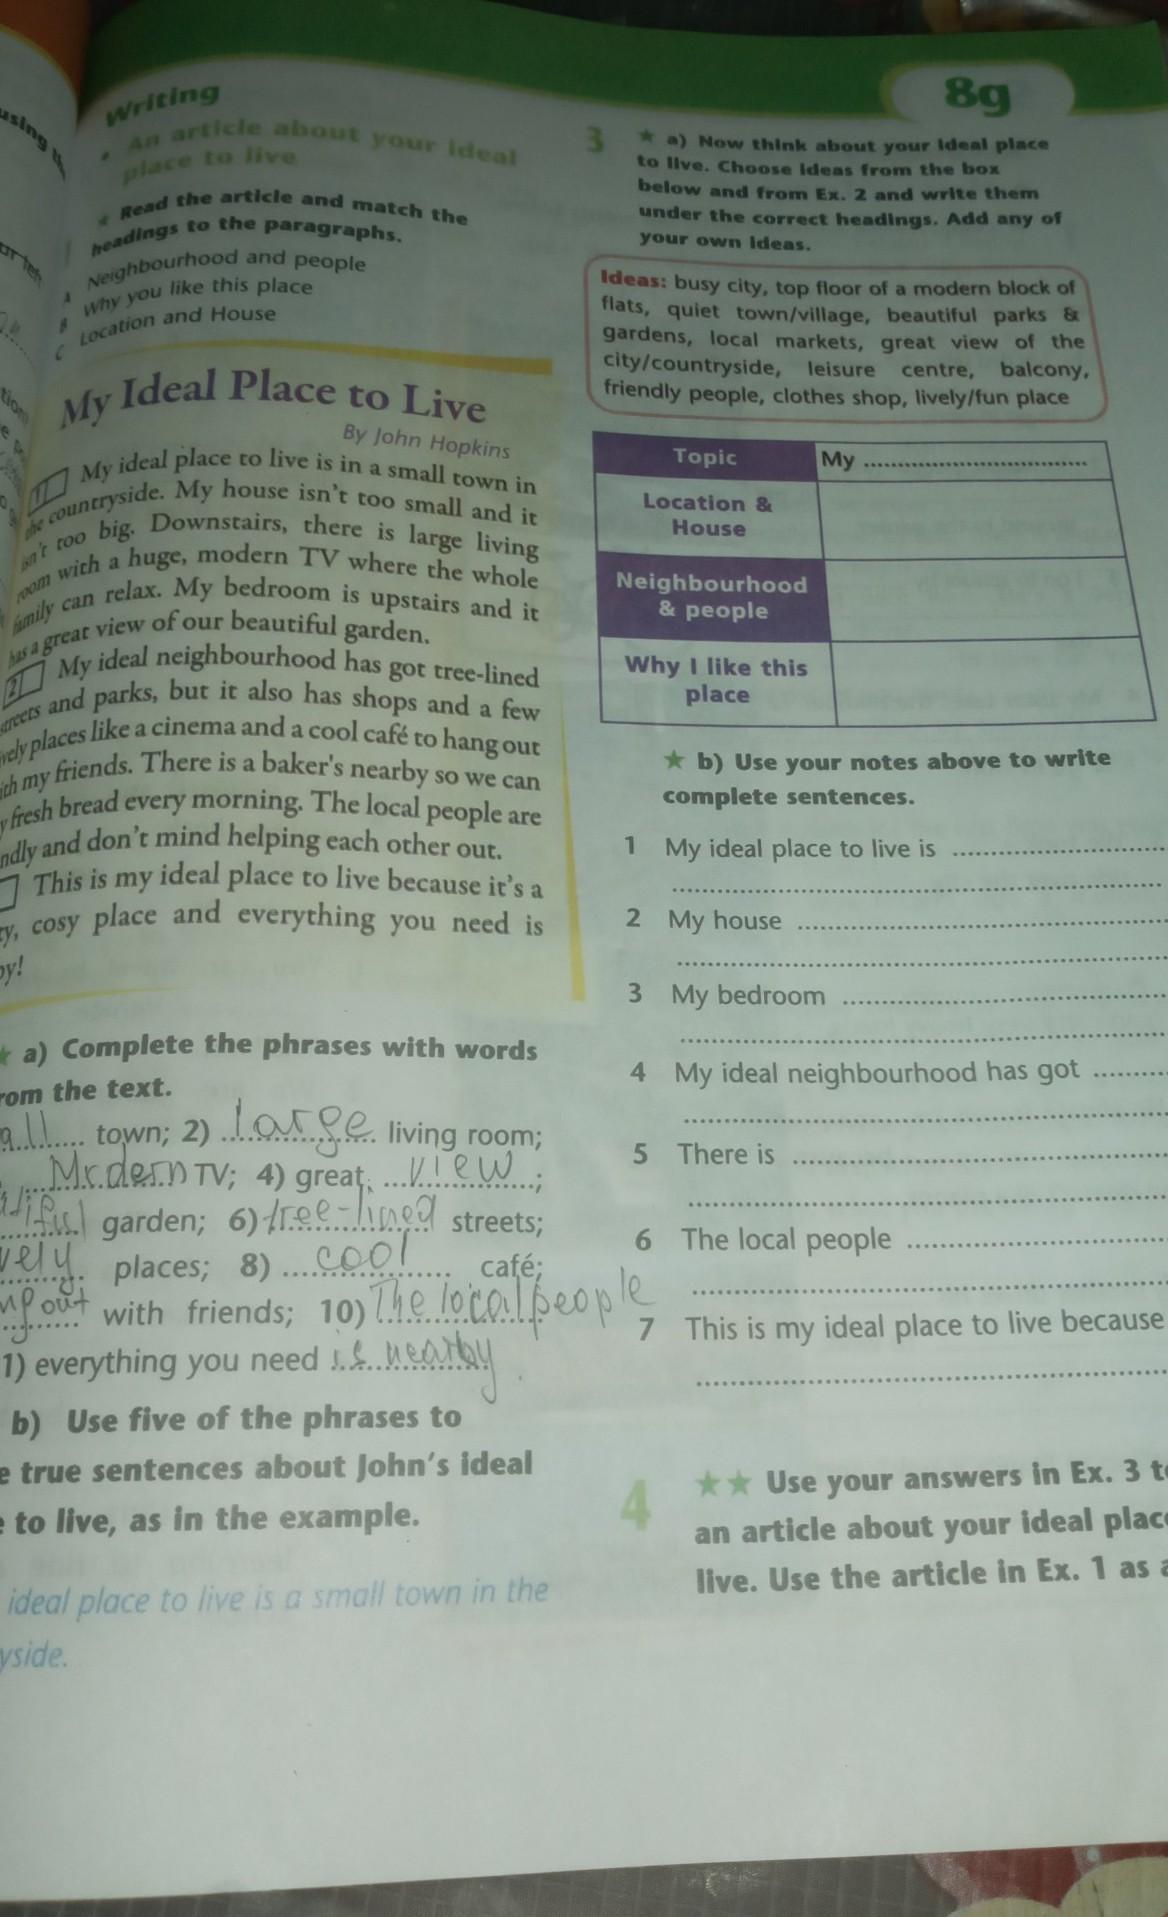 using
Writing
• An article about your ideal
place to live
★ Read the article and match the
headings to the paragraphs.
A Neighbourhood and people
B Why you like this place
C Location and House
My Ideal Place to Live
By John Hopkins
1 My ideal place to live is in a small town in
the countryside. My house isn't too small and it
isn't too big. Downstairs, there is large living
room with a huge, modern TV where the whole
family can relax. My bedroom is upstairs and it
has a great view of our beautiful garden.
2 My ideal neighbourhood has got tree-lined
streets and parks, but it also has shops and a few
vely places like a cinema and a cool café to hang out
ith my friends. There is a baker's nearby so we can
y fresh bread every morning. The local people are
ndly and don't mind helping each other out.
This is my ideal place to live because it's a
ty, cosy place and everything you need is
by!
★ a) Complete the phrases with words
rom the text.
all town; 2) large living room;
Modern TV; 4) great view;
tiful garden; 6) tree-lined streets;
vely places; 8) cool café;
ng out with friends; 10) The local people
1) everything you need is nearby.
b) Use five of the phrases to
e true sentences about John's ideal
e to live, as in the example.
ideal place to live is a small town in the
yside.
8g
3 ★ a) Now think about your ideal place
to live. Choose ideas from the box
below and from Ex. 2 and write them
under the correct headings. Add any of
your own ideas.
Ideas: busy city, top floor of a modern block of
flats, quiet town/village, beautiful parks &
gardens, local markets, great view of the
city/countryside, leisure centre, balcony,
friendly people, clothes shop, lively/fun place
Topic My ................................
Location &
House
Neighbourhood
& people
Why I like this
place
★ b) Use your notes above to write
complete sentences.
1 My ideal place to live is ................................
2 My house ................................
3 My bedroom ................................
4 My ideal neighbourhood has got ..........
5 There is ................................
6 The local people ................................
7 This is my ideal place to live because
................................
4 ★★ Use your answers in Ex. 3 t
an article about your ideal plac
live. Use the article in Ex. 1 as a